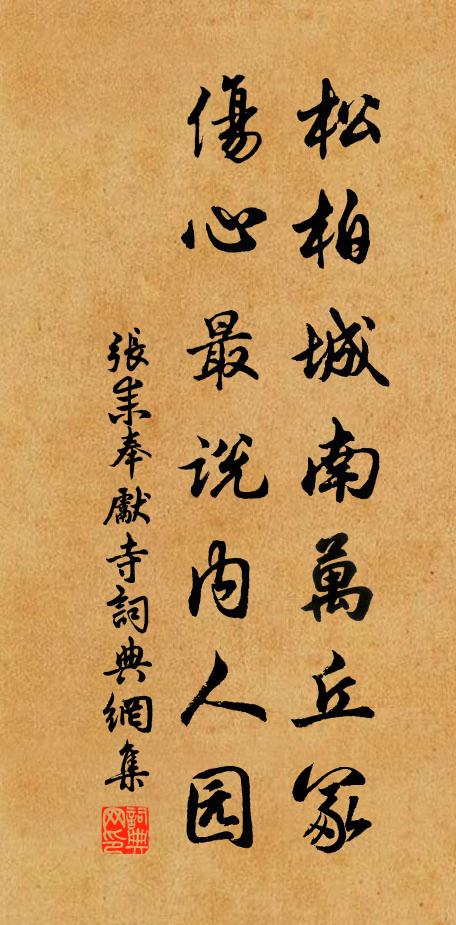 松柏城南萬丘冢
傷心最说内人园
張耒奉獻寺詞典網集
詞典網印